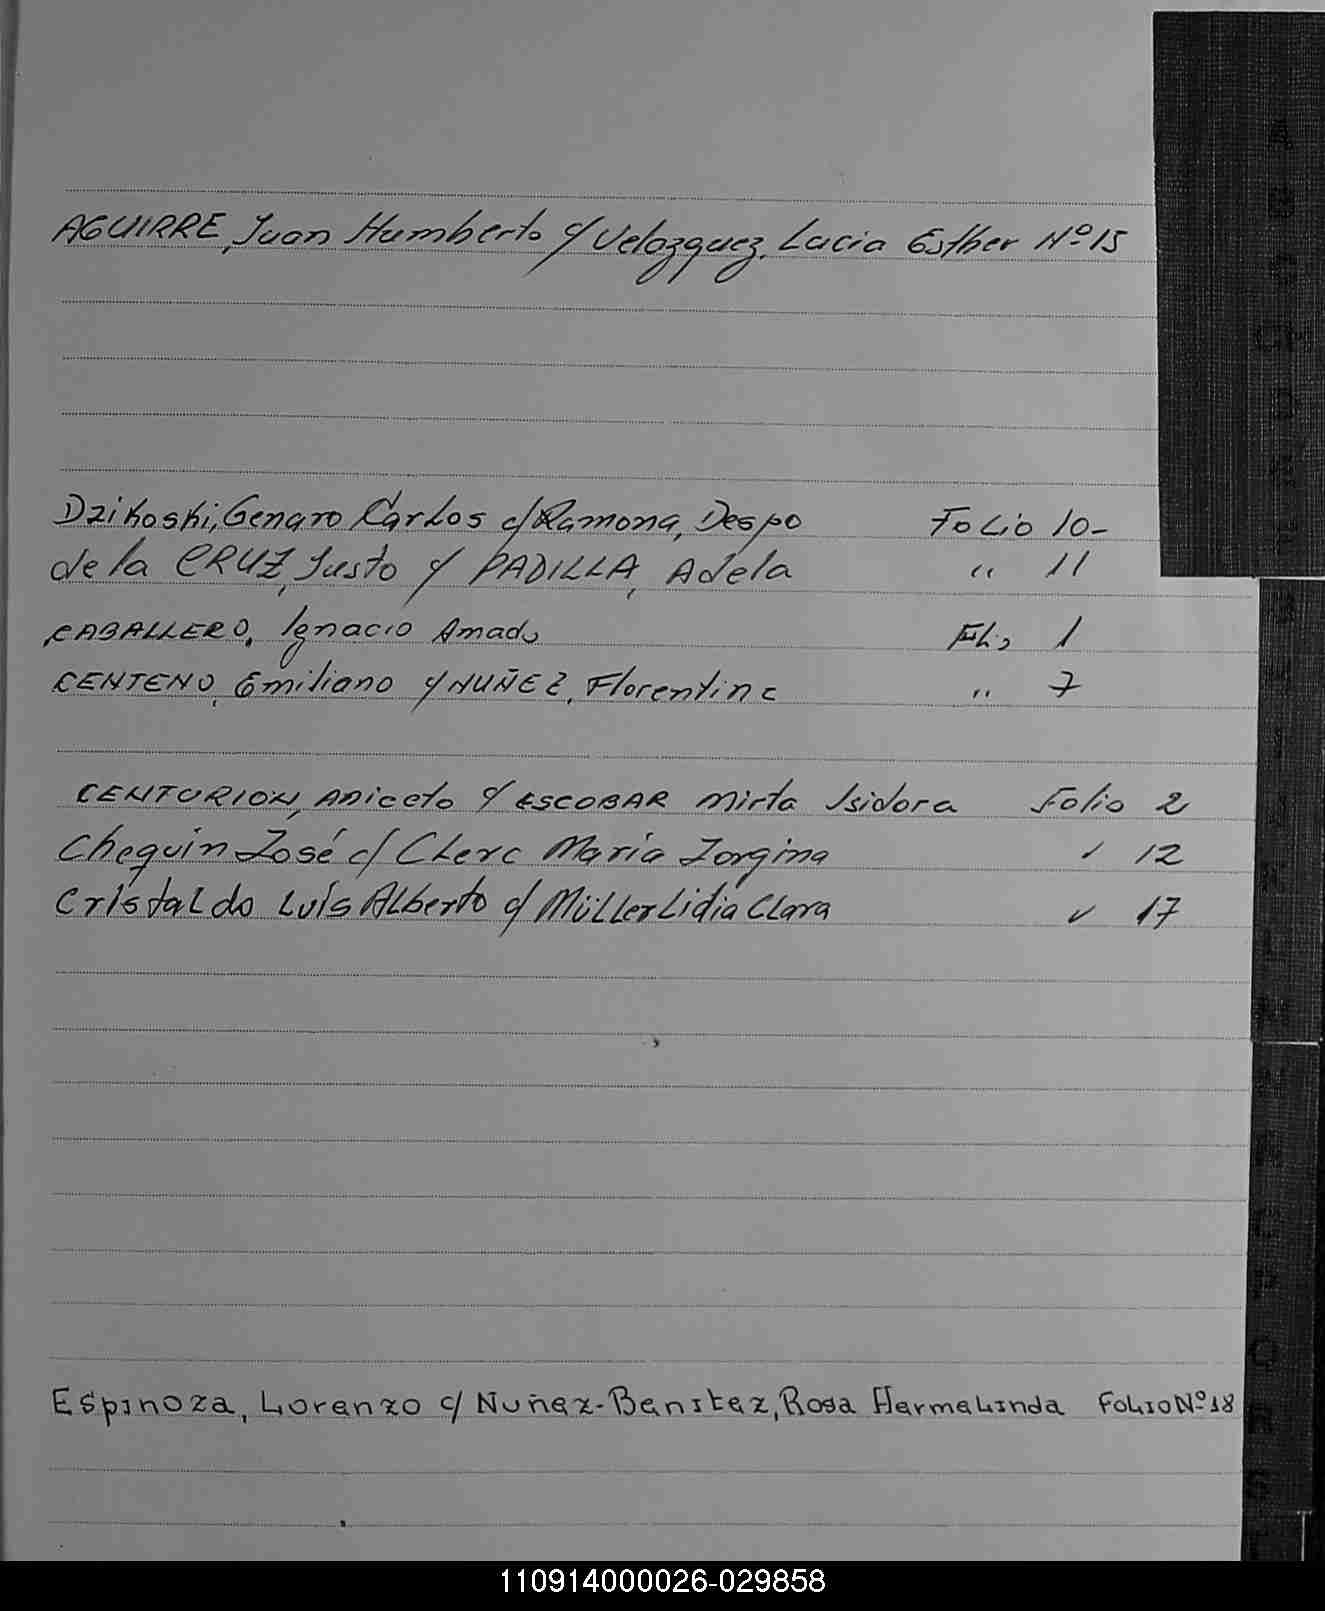 AGUIRRE, Juan Humberto c/ Velazquez, Lucia Esther Nº 15
Dzikoski, Genaro Carlos c/ Ramona, Despo Folio 10-
de la CRUZ, Justo c/ PADILLA, Adela " 11
CABALLERO, Ignacio Amado Folio 1
CENTENO, Emiliano c/ NUÑEZ, Florentina " 7
CENTURION, Aniceto c/ ESCOBAR Mirta Isidora Folio 2
Chequin José c/ Clerc Maria Jorgina " 12
Cristaldo Luís Alberto c/ Müller Lidia Clara " 17
Espinoza, Lorenzo c/ Nuñez-Benitez, Rosa Hermelinda Folio Nº 18
110914000026-029858